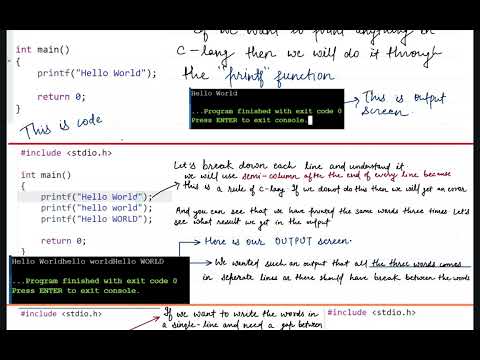 If we want to print anything in
C-lang then we will do it through
the "printf" function
int main()
{
printf("Hello World");
return 0;
}
This is code
Hello World
...Program finished with exit code 0
Press ENTER to exit console.
This is output
screen.
#include <stdio.h>
int main()
{
printf("Hello World");
printf("hello world");
printf("Hello WORLD");
return 0;
}
Let's break down each line and understand it.
we will use semi-column after the end of every line because
this is a rule of c-lang If we donot do this then we will get an error
And you can see that we have printed the same words three times Let's
see what result we get in the output
Here is our OUTPUT screen.
Hello Worldhello worldHello WORLD
...Program finished with exit code 0
Press ENTER to exit console.
We wanted such an output that all the three words comes
in seperate lines or there should have break between the words
#include <stdio.h>
If we want to write the words in
a single-line and need a gap between
#include <stdio.h>